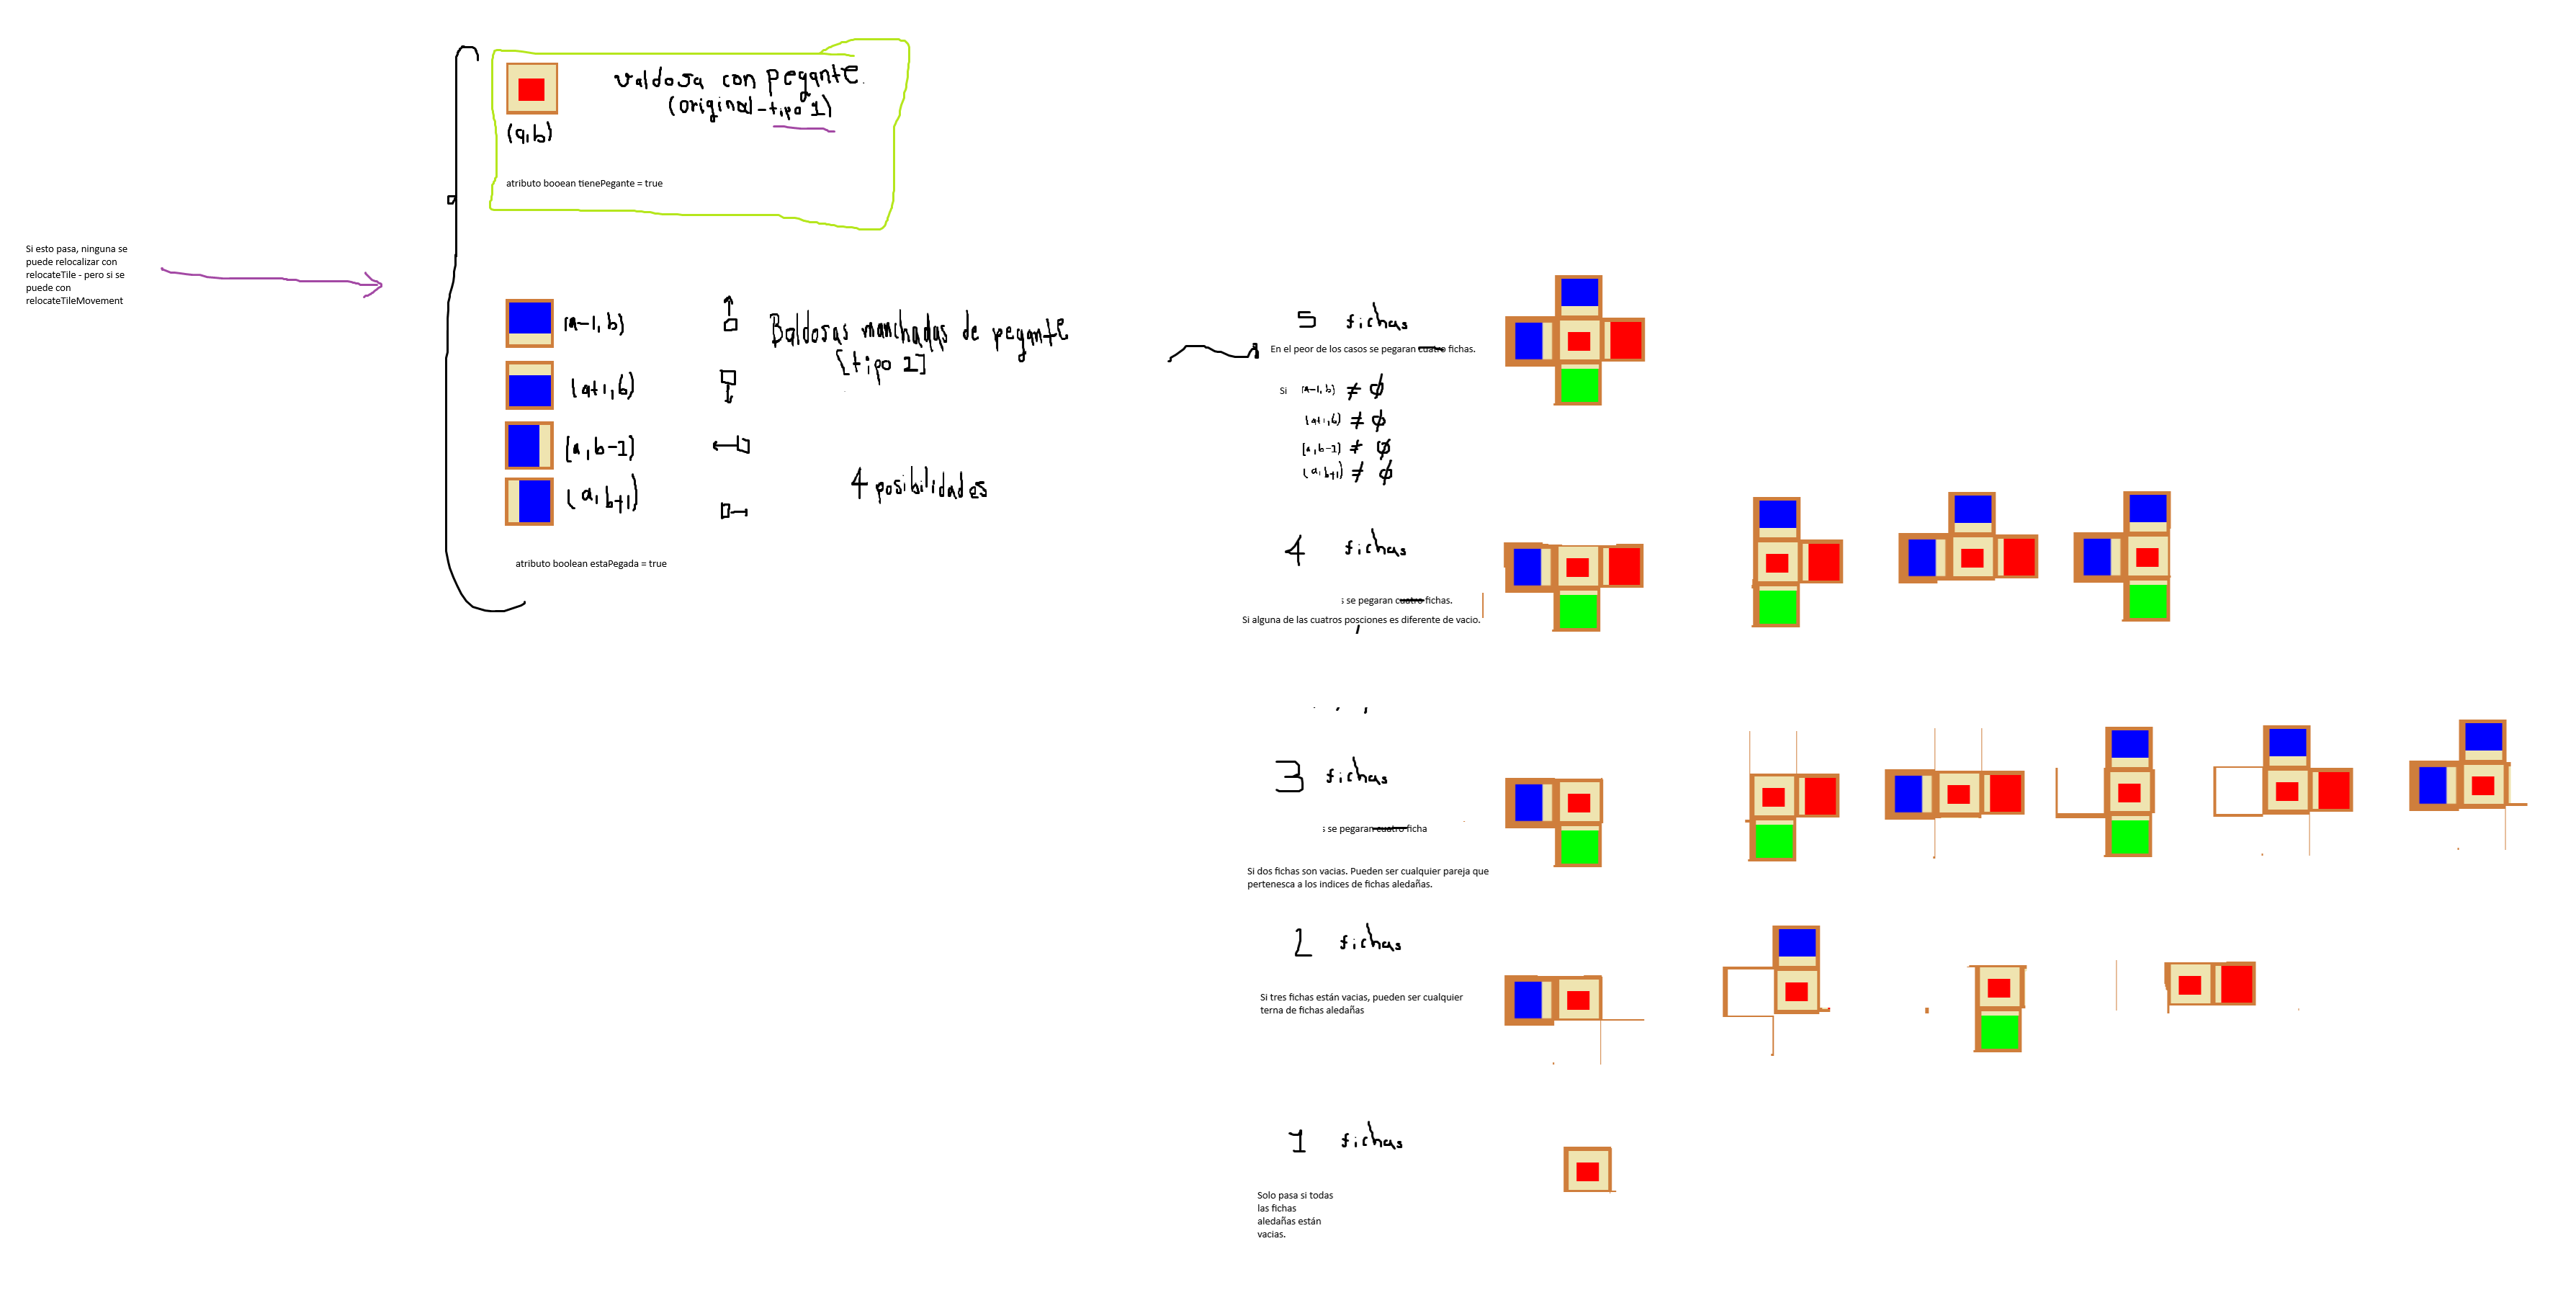 valdosa con pegante.
(original - tipo 1)
(a,b)
atributo booean tienePegante = true
Si esto pasa, ninguna se
puede relocalizar con
relocateTile - pero si se
puede con
relocateTileMovement
(a-1, b)
(a+1, b)
(a, b-1)
(a, b+1)
Baldosas manchadas de pegante
[tipo 2]
4 posibilidades
atributo boolean estaPegada = true
5 fichas
En el peor de los casos se pegaran cuatro fichas.
Si (a-1, b) ≠ ∅
(a+1, b) ≠ ∅
(a, b-1) ≠ ∅
(a, b+1) ≠ ∅
4 fichas
s se pegaran cuatro fichas.
Si alguna de las cuatros posciones es diferente de vacio.
3 fichas
s se pegaran cuatro ficha
Si dos fichas son vacias. Pueden ser cualquier pareja que
pertenesca a los indices de fichas aledañas.
2 fichas
Si tres fichas están vacias, pueden ser cualquier
terna de fichas aledañas
1 fichas
Solo pasa si todas
las fichas
aledañas están
vacias.